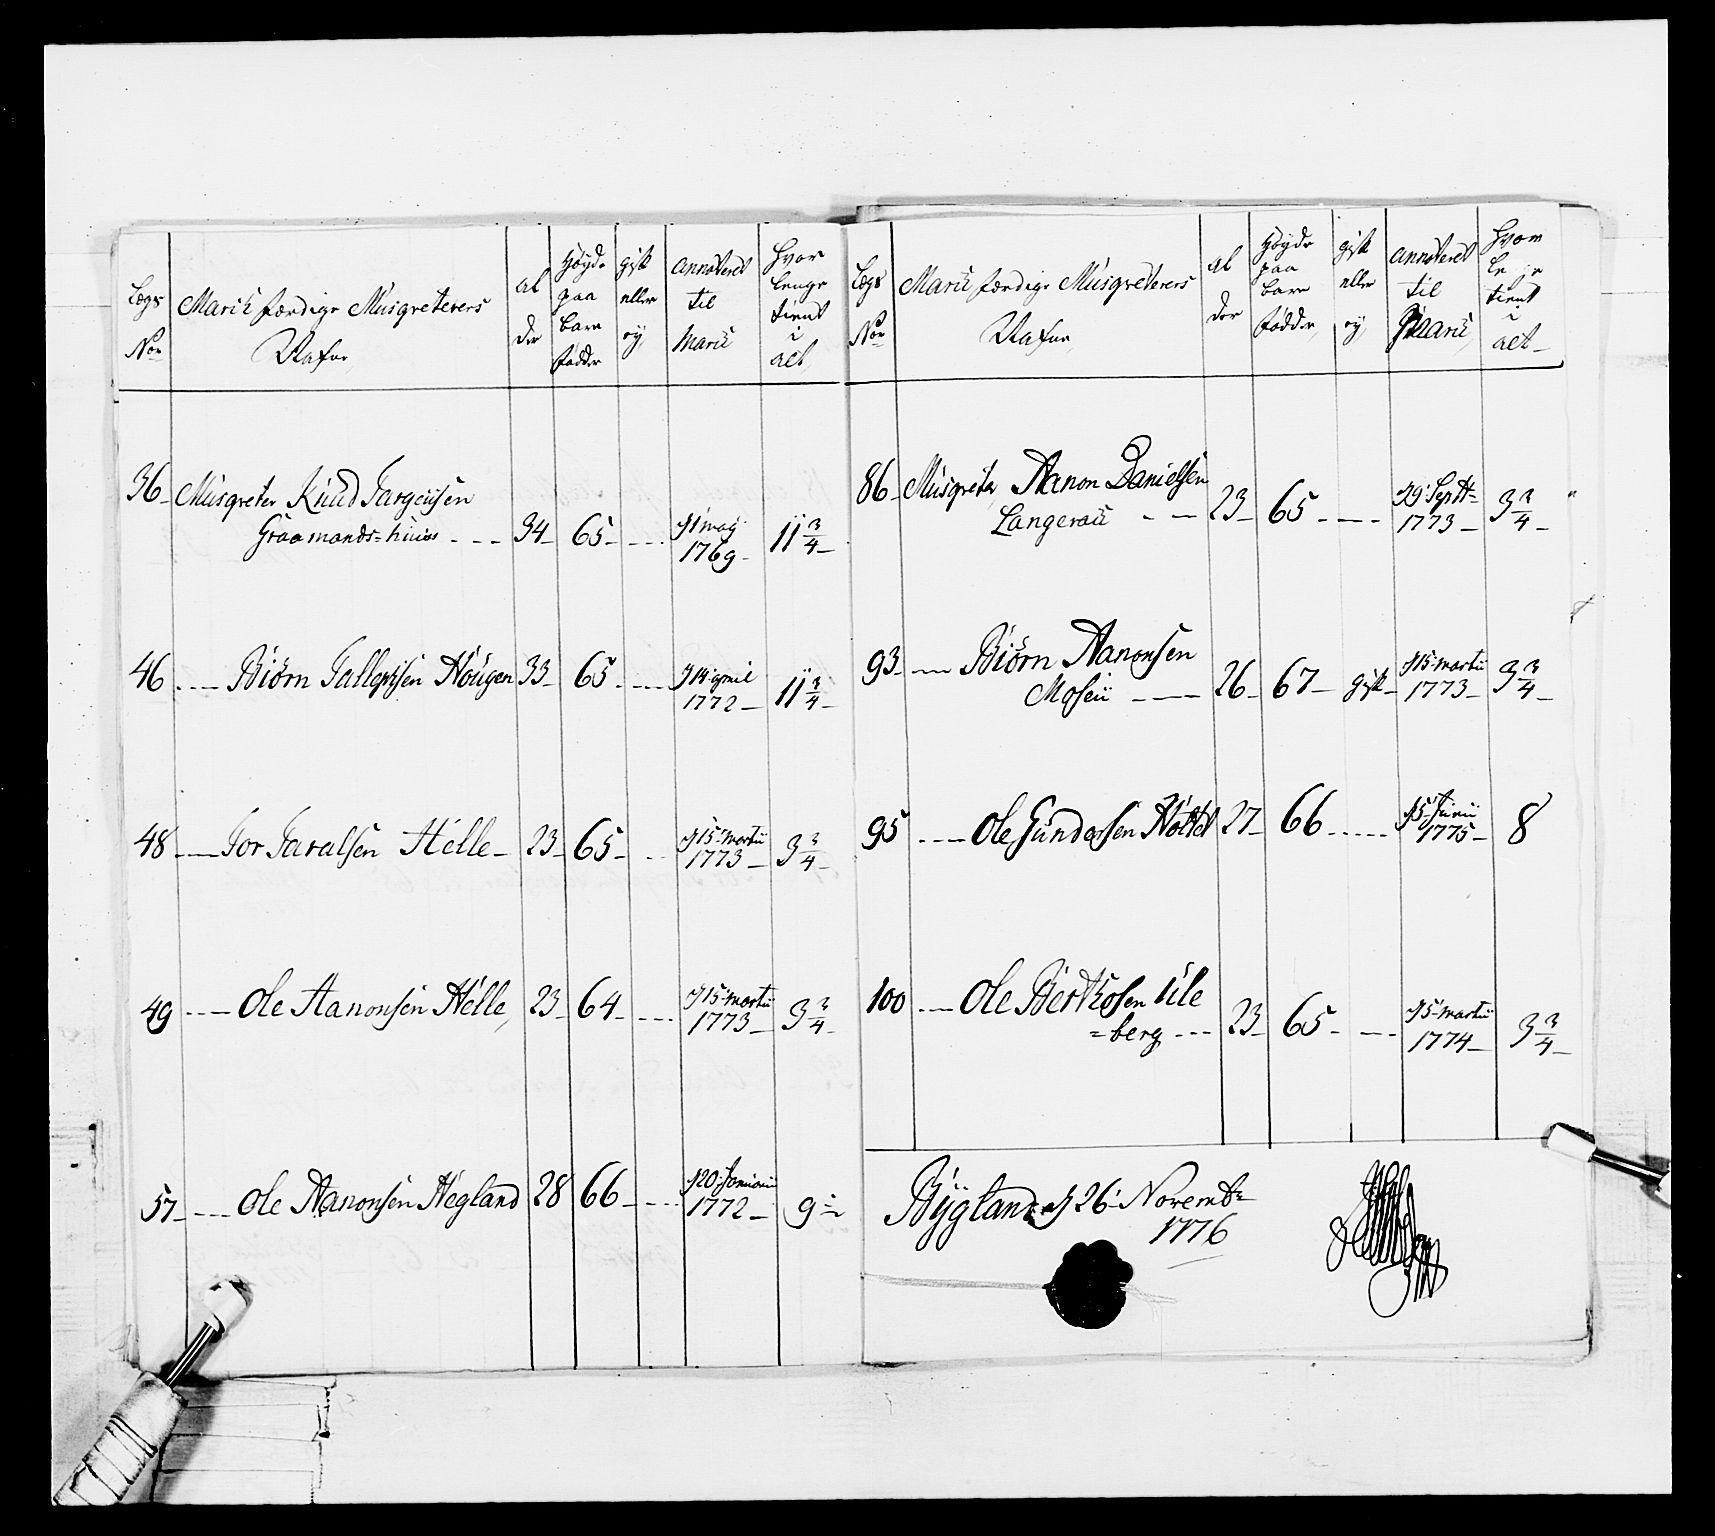 Lægs
No
Marck færdige Musqueterers
Nafne
al
der
Høyde
paa
bare
fødder
gift
eller
ey
annoteret
til
Marü
Hvor
lenge
tient
i
alt
36 Musqueter Knud Targeusen
Graamands=huus 34 65 1 may 1769 11 3/4
46 Biörn Tallepsen Hougen 33 65 1772 11 3/4
48 Tor Taralsen Helle 23 65 15 Martii 1773 3 3/4
49 Ole Aanonsen Helle 23 64 15 Martii 1773 3 3/4
57 Ole Aanonsen Hegland 28 66 20 1772 9
Lægs
No
Marü færdige Musqueterers
Nafne
al
der
Høyde
paa
bare
fødder
gift
eller
ey
annoteret
til
Marü
Hvor
lenge
tient
i
alt
86 Musqueter Aanon Danielsen
Langerack 23 65 29 Sept 1773 3 3/4
93 Biörn Aanonsen
Moseü 26 67 gift 15 Martii 1773 3 3/4
95 Ole Gundersen 27 66 1775 8
100 Ole Berthosen Ule
=berg 23 65 Martii 1774 3 3/4
Bÿgland d 26 Novemb
1776